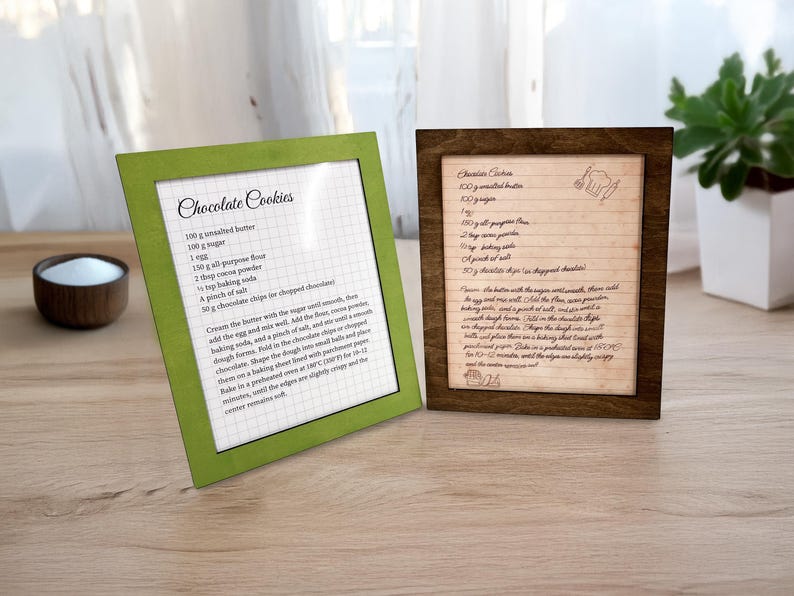 Chocolate Cookies
100 g unsalted butter
100 g sugar
1 egg
150 g all-purpose flour
2 tbsp cocoa powder
½ tsp baking soda
A pinch of salt
50 g chocolate chips (or chopped chocolate)
Cream the butter with the sugar until smooth, then
add the egg and mix well. Add the flour, cocoa powder,
baking soda, and a pinch of salt, and stir until a smooth
dough forms. Fold in the chocolate chips or chopped
chocolate. Shape the dough into small balls and place
them on a baking sheet lined with parchment paper.
Bake in a preheated oven at 180°C (350°F) for 10–12
minutes, until the edges are slightly crispy and the
center remains soft.
Chocolate Cookies
100 g unsalted butter
100 g sugar
1 egg
150 g all-purpose flour
2 tbsp cocoa powder
½ tsp baking soda
A pinch of salt
50 g chocolate chips (or chopped chocolate)
Cream the butter with the sugar until smooth, then add
the egg and mix well. Add the flour, cocoa powder,
baking soda, and a pinch of salt, and stir until a
smooth dough forms. Fold in the chocolate chips
or chopped chocolate. Shape the dough into small
balls and place them on a baking sheet lined with
parchment paper. Bake in a preheated oven at 180°C
for 10-12 minutes, until the edges are slightly crispy
and the center remains soft